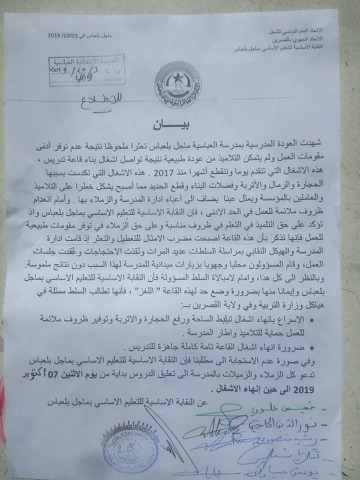 الاتحاد العام التونسي للشغل
الاتحاد الجهوي بالقصرين
النقابة الأساسية للتعليم الأساسي بماجل بلعباس
ماجل بلعباس في 2019/10/03
المدرسة الابتدائية العباسية
بيـــان
شهدت العودة المدرسية بمدرسة العباسية ماجل بلعباس تعثرا ملحوظا نتيجة عدم توفر أدنى
مقومات العمل ولم يتمكن التلاميذ من عودة طبيعية نتيجة تواصل اشغال بناء قاعة تدريس ،
هذه الاشغال التي تتقدم يوما وتنقطع أشهرا منذ 2017 . هذه الاشغال التي تكدست بسببها
الحجارة والرمال والأتربة وفضلات البناء وقطع الحديد مما أصبح يشكل خطرا على التلاميذ
والعاملين بالمؤسسة وبمثل عبئا يضاف الى أعباء ادارة المدرسة والزملاء بها . وأمام انعدام
ظروف ملائمة للعمل في الحد الادنى ، فإن النقابة الأساسية للتعليم الاساسي بماجل بلعباس واذ
تؤكد على حق التلميذ في التعلم في ظروف مناسبة وعلى حق الزملاء في توفر مقومات طبيعية
للعمل فإنها تذكر بأن هذه القاعة اصبحت مضرب الامثال للتعطيل والتعثر إذ قامت ادارة
المدرسة والهيكل النقابي بمراسلة السلطات عديد المرات ونفذت الاحتجاجات وعقدت جلسات
عمل، وقام المسؤولون محليا وجهويا بزيارات ميدانية للمدرسة لهذا السبب دون نتائج ملموسة.
وبالنظر الى كل هذا، وامام لامبالاة السلط المسؤولة فأن النقابة الأساسية للتعليم الاساسي بماجل
بلعباس وإيمانا منها بضرورة وضع حد لهذه القاعة "اللغز"، فأنها تطالب السلط ممثلة في
هياكل وزارة التربية وفي ولاية القصرين بـ:
• الاسراع بانهاء أشغال تبليط الساحة ورفع الحجارة والاتربة وتوفير ظروف ملائمة
للعمل حماية للتلاميذ واطار المدرسة.
• ضرورة انهاء اشغال القاعة تامة كاملة جاهزة للتدريس.
وفي صورة عدم الاستجابة الى مطلبنا فإن النقابة الاساسية للتعليم الاساسي بماجل بلعباس
تدعو كل الزملاء والزميلات بالمدرسة الى تعليق الدروس بداية من يوم الاثنين 07 أكتوبر
2019 الى حين إنهاء الاشغال .
عن النقابة الاساسية للتعليم الاساسي بماجل بلعباس